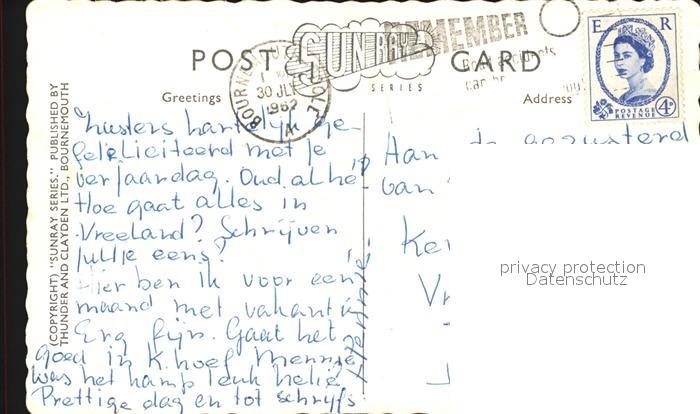 POST CARD
SUNRAY
SERIES
REMEMBER
BOURNEMOUTH POOLE
30 JLY
1962
A
E R
POSTAGE REVENUE
4D
Greetings
Address
(COPYRIGHT) "SUNRAY SERIES." PUBLISHED BY
THUNDER AND CLAYDEN LTD., BOURNEMOUTH
Zusters hartelijk ge-
feliciteerd met je
verjaardag. Oud al hè?
Hoe gaat alles in
Vreeland? Schrijven
jullie eens?
Hier ben ik voor een
maand met vakantie
Erg fijn. Gaat het
goed in K.hoef Mennie
was het kamp leuk
Prettige dag en tot schrijfs
Hennie.
Aan
van
privacy protection
Datenschutz